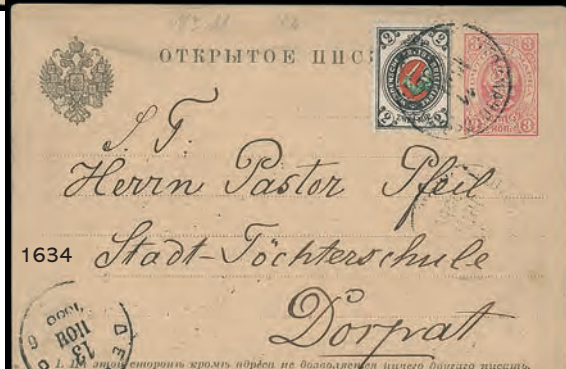 ОТКРЫТОЕ ПИС
2 2
2 2
3 3
3 3
S. T.
Herrn Pastor Pfeil
1634
Stadt-Töchterschule
Dorpat
13
ІЮН
6
ДЕ
1. На этой сторонѣ кромѣ адреса не дозволяется ничего другаго писать.